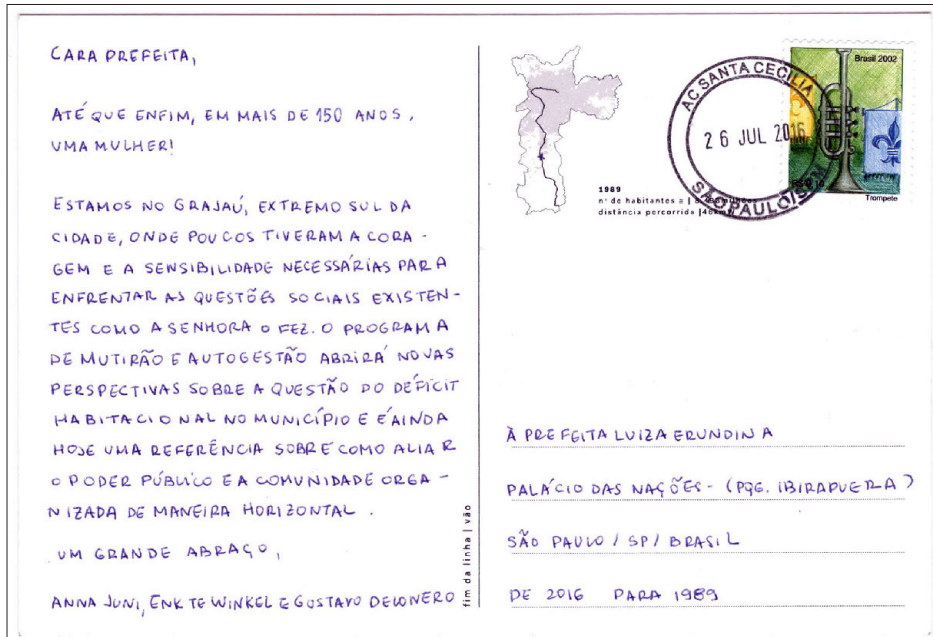 CARA PREFEITA,
ATÉ QUE ENFIM, EM MAIS DE 150 ANOS,
UMA MULHER!
ESTAMOS NO GRAJAÚ, EXTREMO SUL DA
CIDADE, ONDE POUCOS TIVERAM A CORA-
GEM E A SENSIBILIDADE NECESSÁRIAS PARA
ENFRENTAR AS QUESTÕES SOCIAIS EXISTEN-
TES COMO A SENHORA O FEZ. O PROGRAMA
DE MUTIRÃO E AUTOGESTÃO ABRIRÁ NOVAS
PERSPECTIVAS SOBRE A QUESTÃO DO DÉFICIT
HABITACIONAL NO MUNICÍPIO E É AINDA
HOJE UMA REFERÊNCIA SOBRE COMO ALIAR
O PODER PÚBLICO E A COMUNIDADE ORGA-
NIZADA DE MANEIRA HORIZONTAL.
UM GRANDE ABRAÇO,
ANNA JUNI, ENK TE WINKEL E GUSTAVO DELONERO
fim da linha | vão
AC SANTA CECILIA
26 JUL 2016
SÃO PAULO/SPM
Brasil 2002
Trompete
1989
nº de habitantes ≅ |
distância percorrida |
À PREFEITA LUIZA ERUNDINA
PALÁCIO DAS NAÇÕES - (PQE. IBIRAPUERA)
SÃO PAULO / SP / BRASIL
DE 2016 PARA 1989